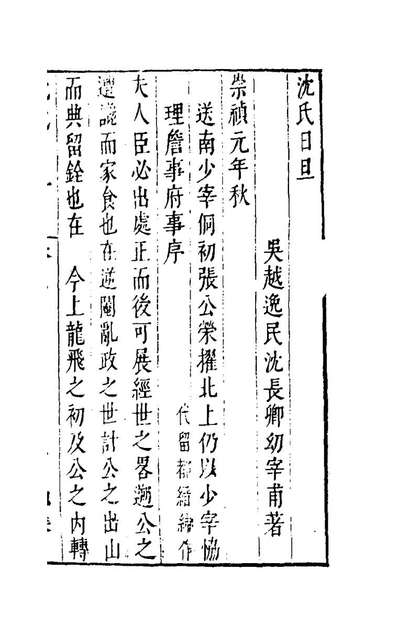 沈氏日旦
吳越逸民沈長卿幼宰甫著
崇禎元年秋
送南少宰侗初張公榮擢北上仍以少宰協
理詹事府事序
代留都縉紳作
夫人臣必出處正而後可展經世之畧遡公之
遭讒而家食也在逆閹亂政之世計公之出山
而典留銓也在 今上龍飛之初及公之內轉